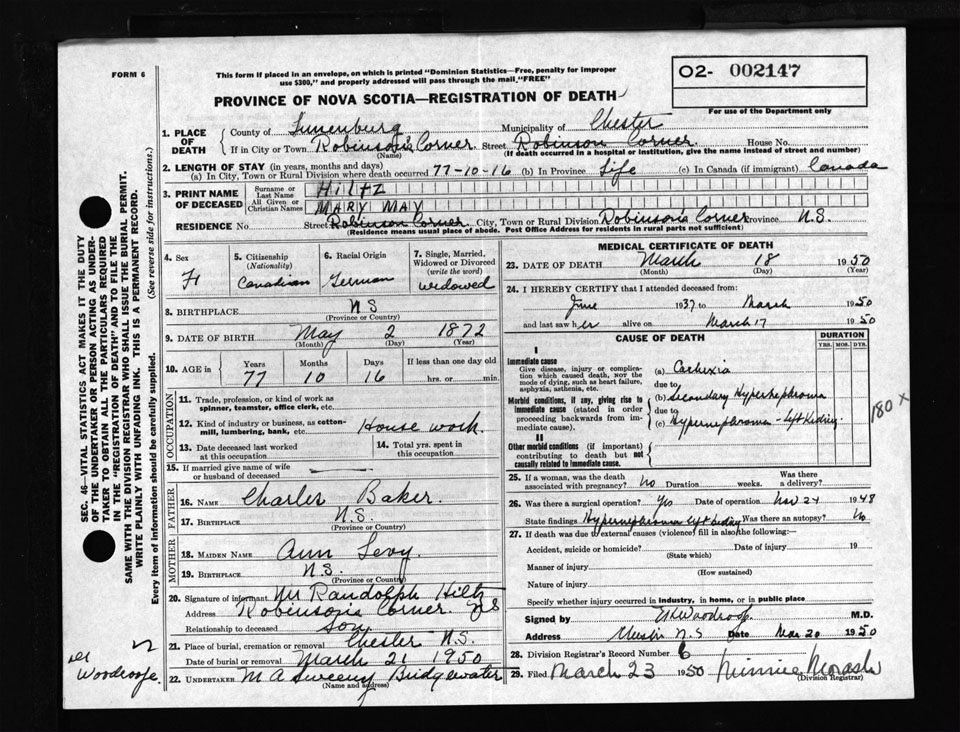 FORM 6
This form if placed in an envelope, on which is printed "Dominion Statistics—Free, penalty for improper
use $300," and properly addressed will pass through the mail "FREE"
O2- 002147
For use of the Department only
PROVINCE OF NOVA SCOTIA—REGISTRATION OF DEATH
1. PLACE OF DEATH
County of Lunenburg Municipality of Chester
If in City or Town Robinson's Corner Street Robinson Corner House No.
(Name) (If death occurred in a hospital or institution, give the name instead of street and number)
2. LENGTH OF STAY (in years, months and days)
(a) In City, Town or Rural Division where death occurred 77-10-16 (b) In Province Life (c) In Canada (if immigrant) Canada
3. PRINT NAME OF DECEASED
Surname or Last Name HILTZ
All Given or Christian Names MARY MAY
RESIDENCE No. Street Robinson Corner City, Town or Rural Division Robinsons Corner Province N.S.
(Residence means usual place of abode. Post Office Address for residents in rural parts not sufficient)
4. Sex F
5. Citizenship (Nationality) Canadian
6. Racial Origin German
7. Single, Married, Widowed or Divorced (write the word) widowed
8. BIRTHPLACE N S
(Province or Country)
9. DATE OF BIRTH May 2 1872
(Month) (Day) (Year)
10. AGE in Years Months Days If less than one day old
77 10 16 hrs. or min.
OCCUPATION
11. Trade, profession, or kind of work as
spinner, teamster, office clerk, etc.
12. Kind of industry or business, as cotton-
mill, lumbering, bank, etc. House work.
13. Date deceased last worked
at this occupation
14. Total yrs. spent in
this occupation
15. If married give name of wife
or husband of deceased
FATHER
16. NAME Charles Baker.
17. BIRTHPLACE N.S.
(Province or Country)
MOTHER
18. MAIDEN NAME Ann Levy.
19. BIRTHPLACE N.S.
(Province or Country)
20. Signature of informant Mr Randolph Hiltz
Address Robinsons Corner. NS
Relationship to deceased Son
21. Place of burial, cremation or removal Chester N.S.
Date of burial or removal March 21 1950
22. UNDERTAKER M A Sweeny Bridgewater
(Name and address)
MEDICAL CERTIFICATE OF DEATH
23. DATE OF DEATH March 18 1950
(Month) (Day) (Year)
24. I HEREBY CERTIFY that I attended deceased from:
June 1937 to March 1950
and last saw her alive on March 17 1950
CAUSE OF DEATH
DURATION
YRS. MOS. DYS.
I
Immediate cause
Give disease, injury or complica-
tion which caused death, NOT the
mode of dying, such as heart failure,
asphyxia, asthenia, etc.
(a) Cachexia
due to
Morbid conditions, if any, giving rise to
immediate cause (stated in order
proceeding backwards from im-
mediate cause).
(b) Secondary Hypernephroma
due to
(c) Hypernephroma - left Kidney.
180 X
II
Other morbid conditions (if important)
contributing to death but not
causally related to immediate cause.
25. If a woman, was the death
associated with pregnancy? No Duration weeks. Was there
a delivery?
26. Was there a surgical operation? Yes Date of operation Nov 24 1948
State findings Hypernephroma left Kidney Was there an autopsy? No
27. If death was due to external causes (violence) fill in also the following:
Accident, suicide or homicide? Date of injury 19
(State which)
Manner of injury
(How sustained)
Nature of injury
Specify whether injury occurred in industry, in home, or in public place
Signed by Woodroofe M.D.
Address Chester N.S Date Mar 20 1950
28. Division Registrar's Record Number 6
29. Filed March 23 1950 Minnie Morash
(Division Registrar)
SEC. 46—VITAL STATISTICS ACT MAKES IT THE DUTY
OF THE UNDERTAKER OR PERSON ACTING AS UNDER-
TAKER TO OBTAIN ALL THE PARTICULARS REQUIRED
IN THE "REGISTRATION OF DEATH" AND TO FILE THE
SAME WITH THE DIVISION REGISTRAR WHO SHALL ISSUE THE BURIAL PERMIT.
WRITE PLAINLY WITH UNFADING INK. THIS IS A PERMANENT RECORD.
Every item of information should be carefully supplied. (See reverse side for instructions.)
Woodroofe.